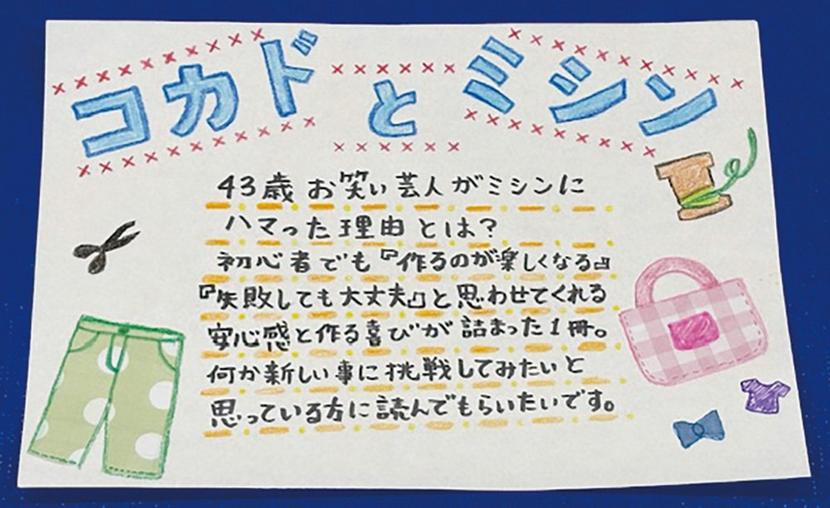 コカドとミシン
43歳お笑い芸人がミシンに
ハマった理由とは?
初心者でも『作るのが楽しくなる』
『失敗しても大丈夫』と思わせてくれる
安心感と作る喜びが詰まった1冊。
何か新しい事に挑戦してみたいと
思っている方に読んでもらいたいです。